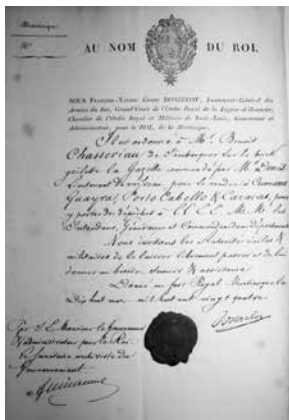 Martinique.
N.º
AU NOM DU ROI.
NOUS François-Xavier Comte DONZELOT, Lieutenant-Général des
Armées du Roi, Grand-Croix de l'Ordre Royal de la Légion-d'Honneur,
Chevalier de l'Ordre Royal et Militaire de Saint-Louis, Gouverneur et
Administrateur, pour le ROI, de la Martinique.
Il est ordonné à M.r Benoit
Chasseriau de s'embarquer sur le brick
goëlette la Gazelle commandé par M.
Lieutenant de vaisseau pour se rendre à Cumana
Guayra, Porto Cabello & Caracas, pour
y porter des dépêches à LL. EE. MM. les
Intendans, Généraux et Commandans des départements
Nous invitons les Autorités civiles &
militaires de le laisser librement passer et de lui
donner au besoin, secours & assistance
Donné au fort Royal Martinique le
Dix huit mai mil huit cent vingt quatre.
Donzelot
Par S. E. Monsieur le Gouverneur
& administrateur pour le Roi
Le Secrétaire archiviste du
Gouvernement